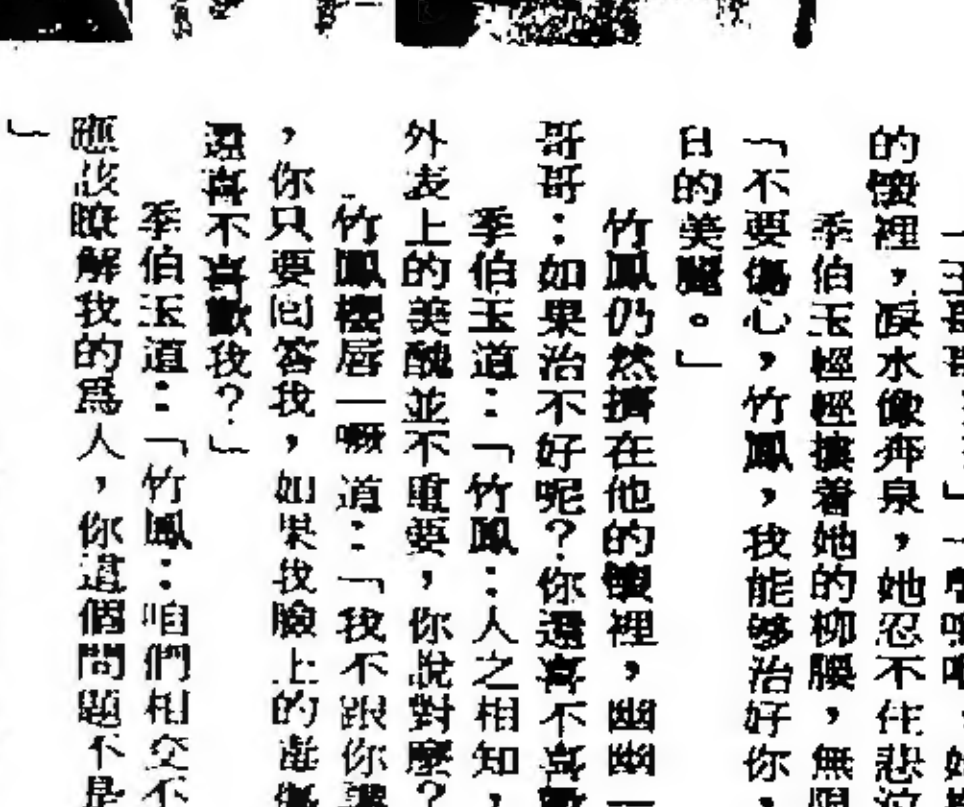 的懷裡，淚水像奔泉，她忍不住悲泣
季伯玉輕輕摟着她的柳腰，無限
「不要傷心，竹鳳，我能够治好你，
日的美麗。」
竹鳳仍然擠在他的懷裡，幽幽一
哥哥：如果治不好呢？你還喜不喜歡
季伯玉道：「竹鳳：人之相知，
外表上的美醜並不重要，你說對麼？
竹鳳櫻唇一噘道：「我不跟你講
，你只要回答我，如果我臉上的毒傷
還喜不喜歡我？」
季伯玉道：「竹鳳：咱們相交不
應該瞭解我的爲人，你這個問題不是
」